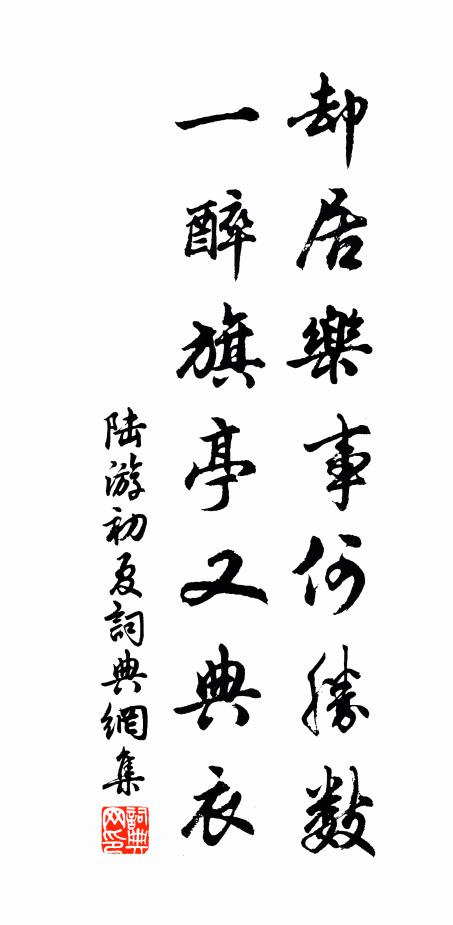 却居樂事何勝數
一醉旗亭又典衣
陸游初夏詞典網集
詞典網印